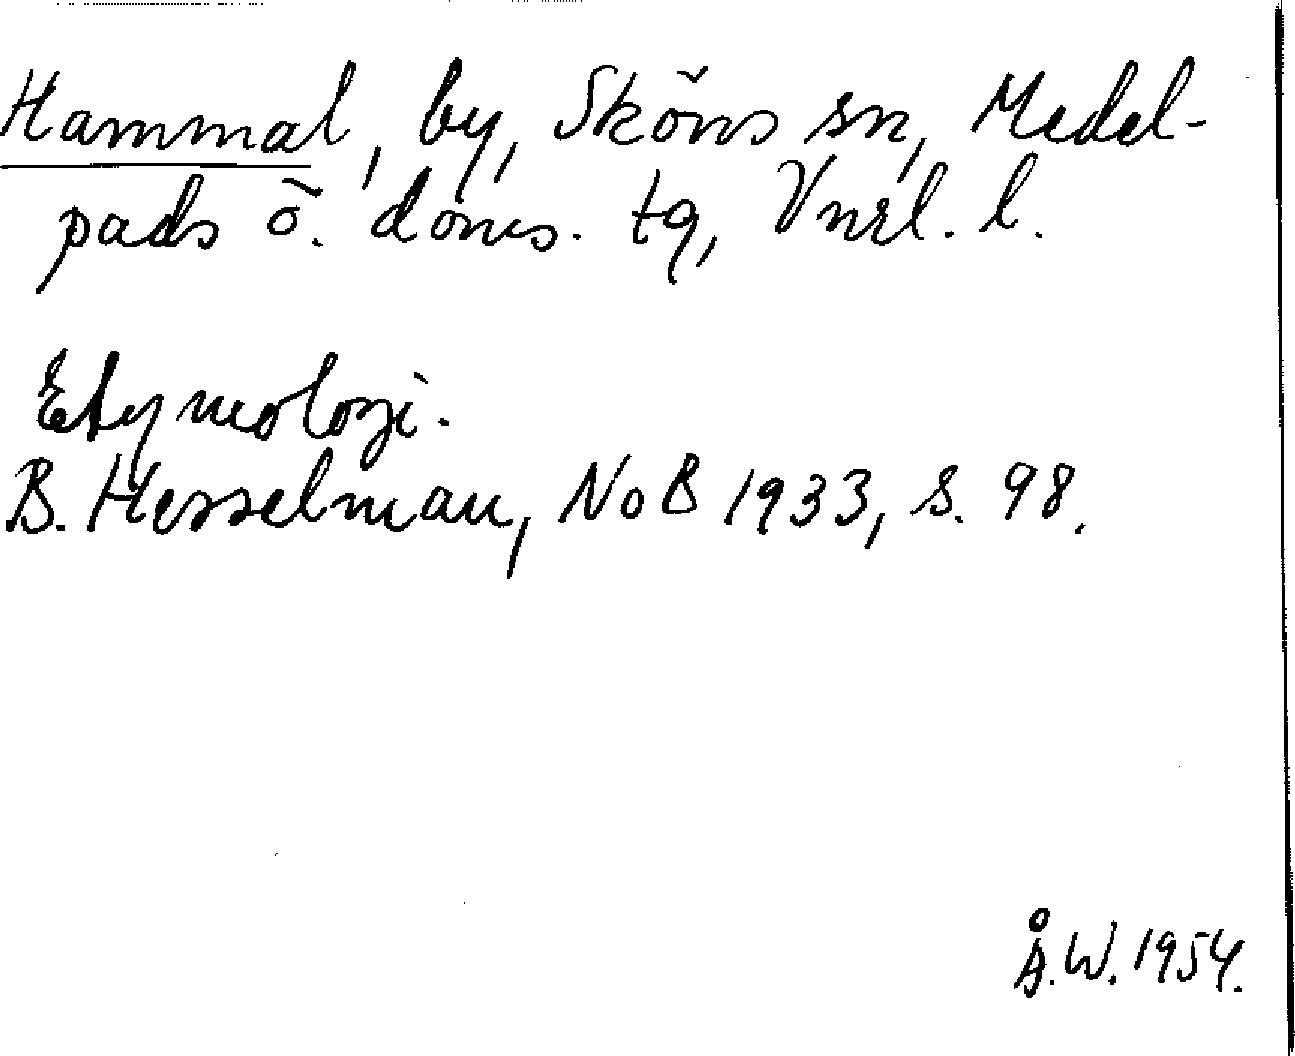 Hammal, by, Sköns sn, Medel-
pads ö. doms. tg, Vnrl. l.
Etymologi.
B. Hesselman, NoB 1933, s. 98.
Å.W. 1954.